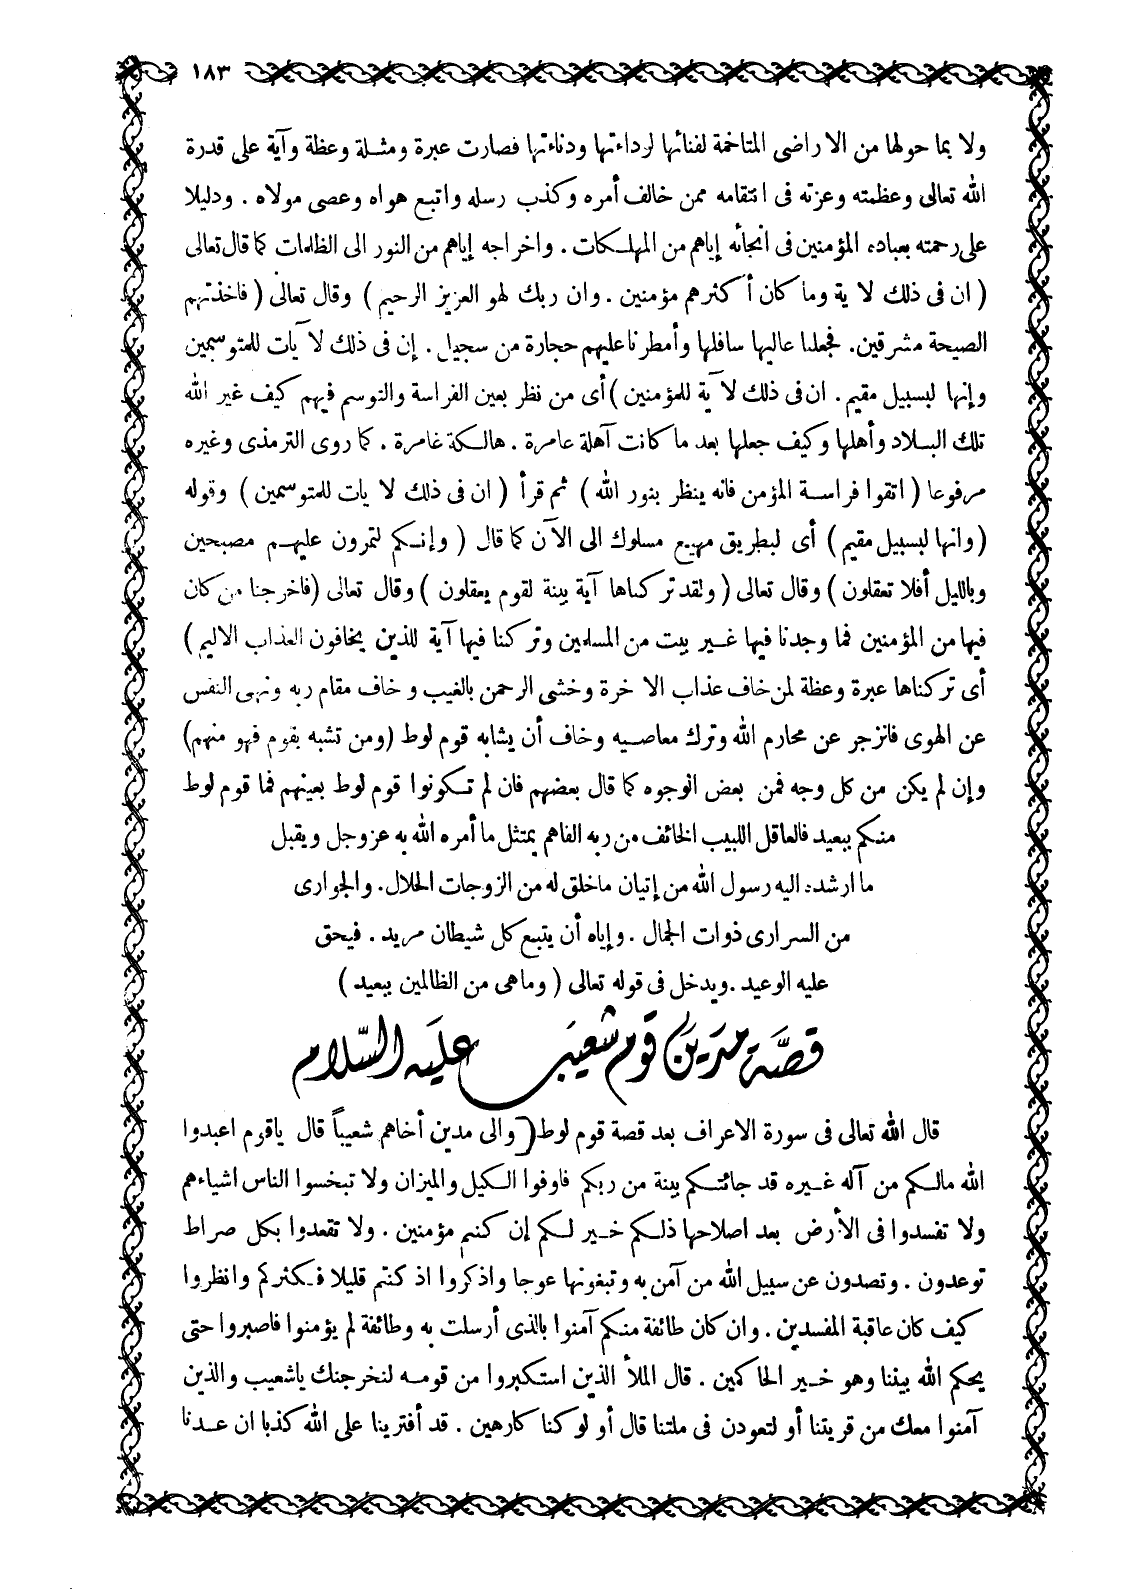 ١٨٣
ولا بما حولها من الاراضى المتاخمة لفنائها لرداءتها ودناءتها فصارت عبرة ومثلة وعظة وآية على قدرة
الله تعالى وعظمته وعزته فى انتقامه ممن خالف أمره وكذب رسله واتبع هواه وعصى مولاه . ودليلا
على رحمته بعباده المؤمنين فى انجائه إياهم من المهلكات . واخراجه إياهم من النور الى الظلمات كما قال تعالى
( ان فى ذلك لآية وما كان أكثرهم مؤمنين . وان ربك لهو العزيز الرحيم ) وقال تعالى ( فاخذتهم
الصيحة مشرقين. فجعلنا عاليها سافلها وأمطرنا عليهم حجارة من سجيل . إن فى ذلك لآيات للمتوسمين
وإنها لبسبيل مقيم . ان فى ذلك لآية للمؤمنين ) أى من نظر بعين الفراسة والتوسم فيهم كيف غير الله
تلك البلاد وأهلها وكيف جعلها بعد ما كانت آهلة عامرة . هالكة غامرة . كما روى الترمذى وغيره
مرفوعا ( اتقوا فراسة المؤمن فانه ينظر بنور الله ) ثم قرأ ( ان فى ذلك لآيات للمتوسمين ) وقوله
( وانها لبسبيل مقيم ) أى لبطريق مهيع مسلوك الى الآن كما قال ( وإنكم لتمرون عليهم مصبحين
وبالليل أفلا تعقلون ) وقال تعالى ( ولقد تركناها آية بينة لقوم يعقلون ) وقال تعالى (فاخرجنا من كان
فيها من المؤمنين فما وجدنا فيها غير بيت من المسلمين وتركنا فيها آية للذين يخافون العذاب الاليم )
أى تركناها عبرة وعظة لمن خاف عذاب الآخرة وخشى الرحمن بالغيب وخاف مقام ربه ونهى النفس
عن الهوى فانزجر عن محارم الله وترك معاصيه وخاف أن يشابه قوم لوط (ومن تشبه بقوم فهو منهم)
وإن لم يكن من كل وجه فمن بعض الوجوه كما قال بعضهم فان لم تكونوا قوم لوط بعينهم فما قوم لوط
منكم ببعيد فالعاقل اللبيب الخائف من ربه الفاهم يمتثل ما أمره الله به عز وجل ويقبل
ما ارشده اليه رسول الله من إتيان ما خلق له من الزوجات الحلال. والجوارى
من السرارى ذوات الجمال . وإياه أن يتبع كل شيطان مريد . فيحق
عليه الوعيد .ويدخل فى قوله تعالى ( وما هى من الظالمين ببعيد )
قصّة مدين قوم شعيب عليه السّلام
قال الله تعالى فى سورة الاعراف بعد قصة قوم لوط ( والى مدين أخاهم شعيباً قال ياقوم اعبدوا
الله مالكم من آله غيره قد جائتكم بينة من ربكم فاوفوا الكيل والميزان ولا تبخسوا الناس اشياءهم
ولا تفسدوا فى الأرض بعد اصلاحها ذلكم خير لكم إن كنتم مؤمنين . ولا تقعدوا بكل صراط
توعدون . وتصدون عن سبيل الله من آمن به وتبغونها عوجا واذكروا اذ كنتم قليلا فكثركم وانظروا
كيف كان عاقبة المفسدين . وان كان طائفة منكم آمنوا بالذى أرسلت به وطائفة لم يؤمنوا فاصبروا حتى
يحكم الله بيننا وهو خير الحاكمين . قال الملأ الذين استكبروا من قومه لنخرجنك ياشعيب والذين
آمنوا معك من قريتنا أو لتعودن فى ملتنا قال أو لو كنا كارهين . قد أفترينا على الله كذبا ان عدنا